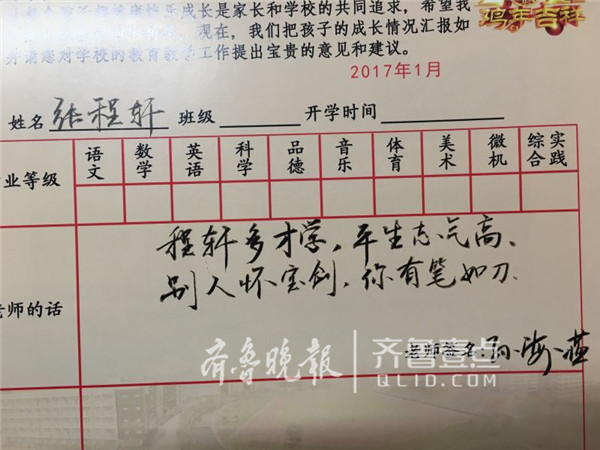 鸡年吉祥
成长是家长和学校的共同追求，希望我
现在，我们把孩子的成长情况汇报如
对学校的教育教学工作提出宝贵的意见和建议。
2017年1月
姓名 张程轩 班级 开学时间
业等级 语文 数学 英语 科学 品德 音乐 体育 美术 微机 综合实践
程轩多才学，平生志气高、
别人怀宝剑，你有笔如刀.
老师的话
老师签名：孙海燕
齐鲁晚报 齐鲁壹点
QLID.COM